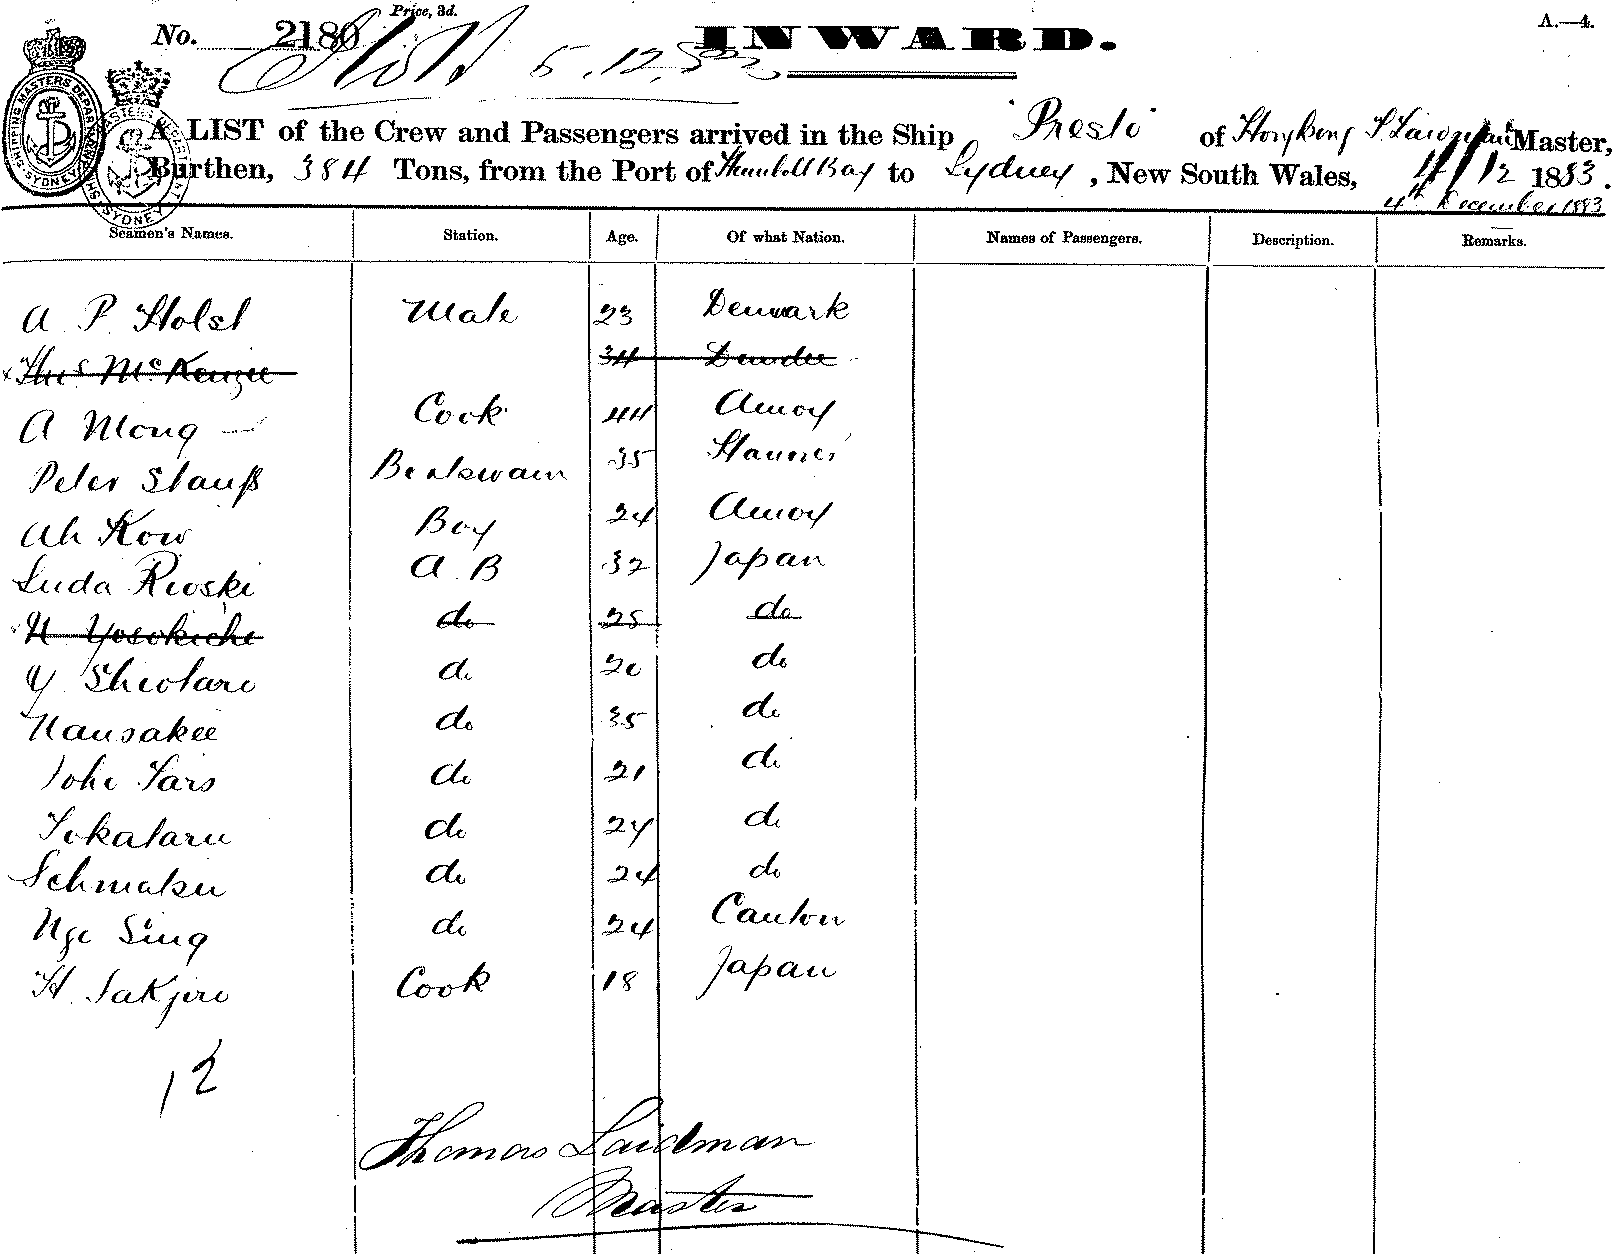 Price, 3d.
No. 2180 INWARD. A.—4.
5.12.83
SHIPPING MASTERS DEPARTMENT SYDNEY
A LIST of the Crew and Passengers arrived in the Ship Presto of Hongkong T. Laidman Master,
Burthen, 384 Tons, from the Port of Bay to Sydney, New South Wales, 4/12 1883.
4th December 1883
Seamen's Names. Station. Age. Of what Nation. Names of Passengers. Description. Remarks.
A P. Holst Mate 23 Denmark
Thos McKenzie 34 Dundee
A Mong Cook 44 Amoy
Peter Stauß Boatswain 35
Ah Kow Boy 24 Amoy
Suda Rioski A.B 32 Japan
N Yosokichi do 25 do
Y Shiotaro do 20 do
Nansakee do 35 do
do 21 do
Tokataru do 24 do
Schmaku do 24 do
Nge Sing do 24 Canton
H. Sakjiro Cook 18 Japan
12
Thomas Laidman
Master